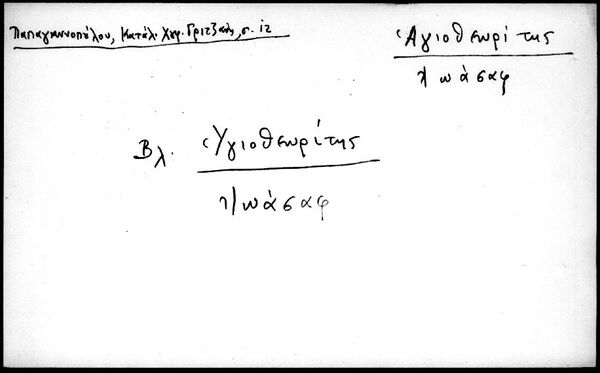 Παπαγιαννοπούλου, Κατάλ. Χειρ. Γριτζάνη, σ. ιζ
Ἁγιοθεωρίτης
Ἰωάσαφ
Βλ. Ὑγιοθεωρίτης
Ἰωάσαφ